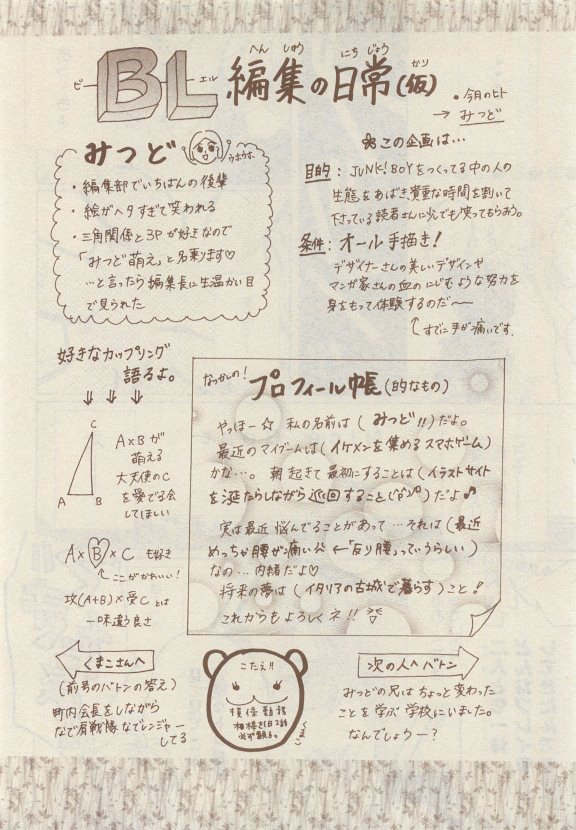 BL編集の日常(仮)
ビー エル へん しゅう にち じょう かり
・今月のヒト
→ みつど
みつど
ウホウホ
・編集部でいちばんの後輩
・絵がヘタすぎて笑われる
・三角関係と3Pが好きなので
「みつど萌え」と名乗ります♡
…と言ったら編集長に生温かい目
で見られた
❀この企画は…
目的：JUNK!BOYをつくってる中の人の
生態をあばき貴重な時間を割いて
下さっている読者さんに少しでも笑ってもらおう。
条件：オール手描き!
デザイナーさんの美しいデザインや
マンガ家さんの血のにじむような努力を
身をもって体験するのだ〜
↑すでに手が痛いです。
好きなカップリング
語るよ。
⇓ ⇓ ⇓
C
A B
A×Bが
萌える
大天使のC
を愛でる会
してほしい
A×B×C も好き
↑ここがかわいい!
攻(A+B)×受C とは
一味違う良さ
なつかしの!
プロフィール帳(的なもの)
やっほー☆ 私の名前は(みつど!!)だよ。
最近のマイブームは(イケメンを集めるスマホゲーム)
かな…。朝起きて最初にすることは(イラストサイト
を涎たらしながら巡回すること)だよ♪
実は最近悩んでることがあって…それは(最近
めっちゃ腰が痛い ←「反り腰」っていうらしい)
なの…内緒だよ♡
将来の夢は(イタリアの古城で暮らす)こと!
これからもよろしくネ!!
くまこさんへ
(前号のバトンの答え)
町内会長をしながら
なで肩戦隊なでレンジャー
してる
こたえ!!
くまこ
次の人へバトン
みつどの兄はちょっと変わった
ことを学ぶ学校にいました。
なんでしょうー?